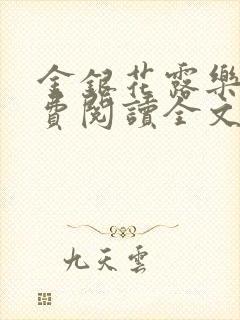 金銀花露樂
費閱讀全文
九天雲